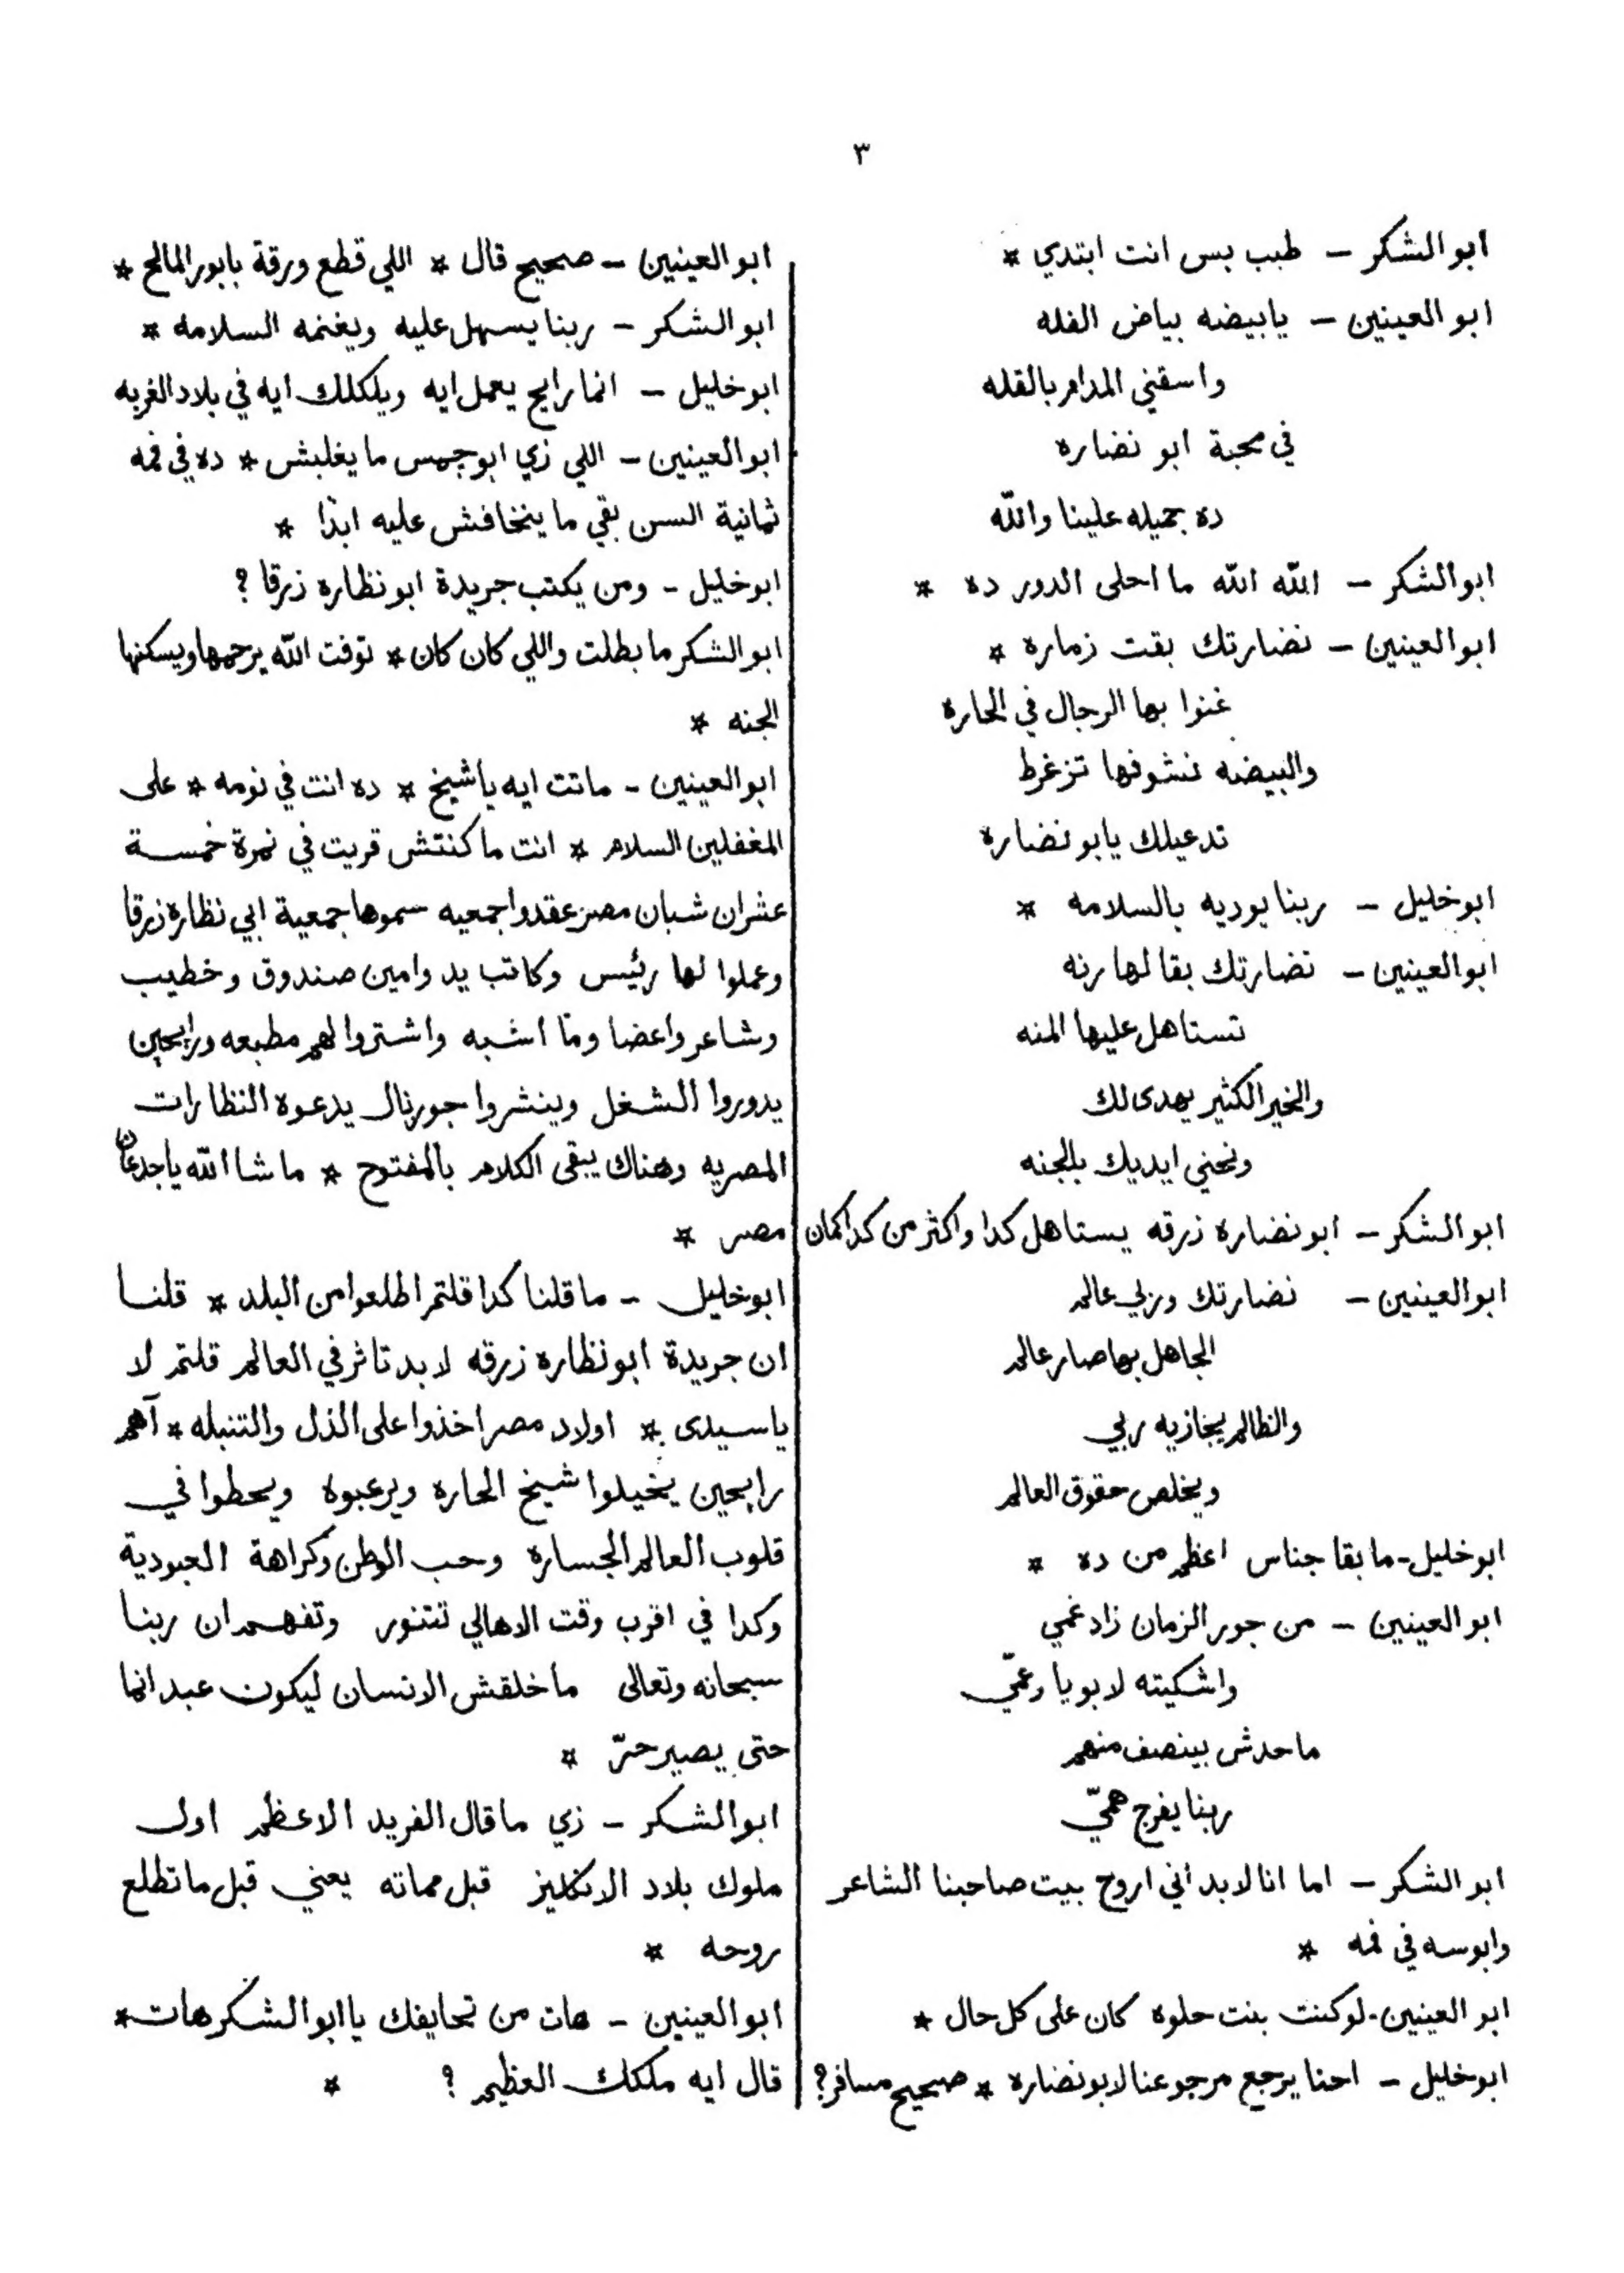 ٣
ابو الشكر – طيب بس انت ابتدي *
ابو العينين – يابيضه بياض الفله
واسقني المدام بالقله
في محبة ابو نضاره
ده جميله علينا والله
ابوالشكر – الله الله ما احلى الدور ده *
ابوالعينين – نضارتك بقت زماره *
غنوا بها الرجال في الحاره
والبيضه نشوفها تزغرط
تدعيلك يابو نضاره
ابوخليل – ربنا يوديه بالسلامه *
ابوالعينين – نضارتك بقا لها رنه
تستاهل عليها المنه
والخير الكثير يهدى لك
ونحني ايديك بالجنه
ابوالشكر – ابونضاره زرقه يستاهل كدا واكثر من كدا كمان
ابوالعينين – نضارتك وربي عالم
الجاهل بها صار عالم
والظالم يجازيه ربي
ويخلص حقوق العالم
ابوخليل – مابقا جناس اعظم من ده *
ابوالعينين – من جور الزمان زاد غمي
واشكيته لابويا وعمّي
ماحدش بينصف منهم
ربنا يفرج همّي
ابوالشكر – اما انا لابد اني اروح بيت صاحبنا الشاعر
وابوسه في فمه *
ابوالعينين – لوكنت بنت حلوه كان على كل حال *
ابوخليل – احنا يرجع مرجوعنا لابونضاره * صحيح مسافر؟
ابوالعينين – صحيح قال * اللي قطع ورقة بابور المالح *
ابوالشكر – ربنا يسهل عليه ويغنمه السلامه *
ابوخليل – انما رايح يعمل ايه ويلكلك ايه في بلاد الغربه
ابوالعينين – اللي زي ابوجمس ما يغلبش * ده في فمه
ثمانية السن بقي ما ينخافش عليه ابدًا *
ابوخليل – ومن يكتب جريدة ابونظاره زرقا؟
ابوالشكر ما بطلت واللي كان كان * توفت الله يرحمها ويسكنها
الجنه *
ابوالعينين – ماتت ايه ياشيخ * ده انت في نومه * على
المغفلين السلام * انت ماكنتش قريت في نمرة خمسة
عشران شبان مصر عقدوا جمعيه سموها جمعية ابي نظاره زرقا
وعملوا لها رئيس وكاتب يد وامين صندوق وخطيب
وشاعر واعضا وما اشبه واشتروا لهم مطبعه ورايحين
يدوروا الشغل وينشروا جورنال يدعوه النظارات
المصريه وهناك يبقى الكلام بالمفتوح * ماشا الله ياجدعان
مصر *
ابوخليل – ماقلنا كدا قلتم اطلعوا من البلد * قلنا
ان جريدة ابونظاره زرقه لابد تاثر في العالم قلتم لا
ياسيدى * اولاد مصر اخذوا على الذل والتنبله * آهم
رايحين يخيلوا شيخ الحاره ويرعبوه ويحطوا في
قلوب العالم الجساره وحب الوطن وكراهة العبودية
وكدا في اقرب وقت الاهالي تتنور وتفهم ان ربنا
سبحانه وتعالى ماخلقش الانسان ليكون عبد انما
حتى يصير حرّ *
ابوالشكر – زي ماقال الفريد الاعظم اول
ملوك بلاد الانكليز قبل مماته يعني قبل ماتطلع
روحه *
ابوالعينين – هات من تحايفك يا ابوالشكر هات *
قال ايه ملكك العظيم؟ *